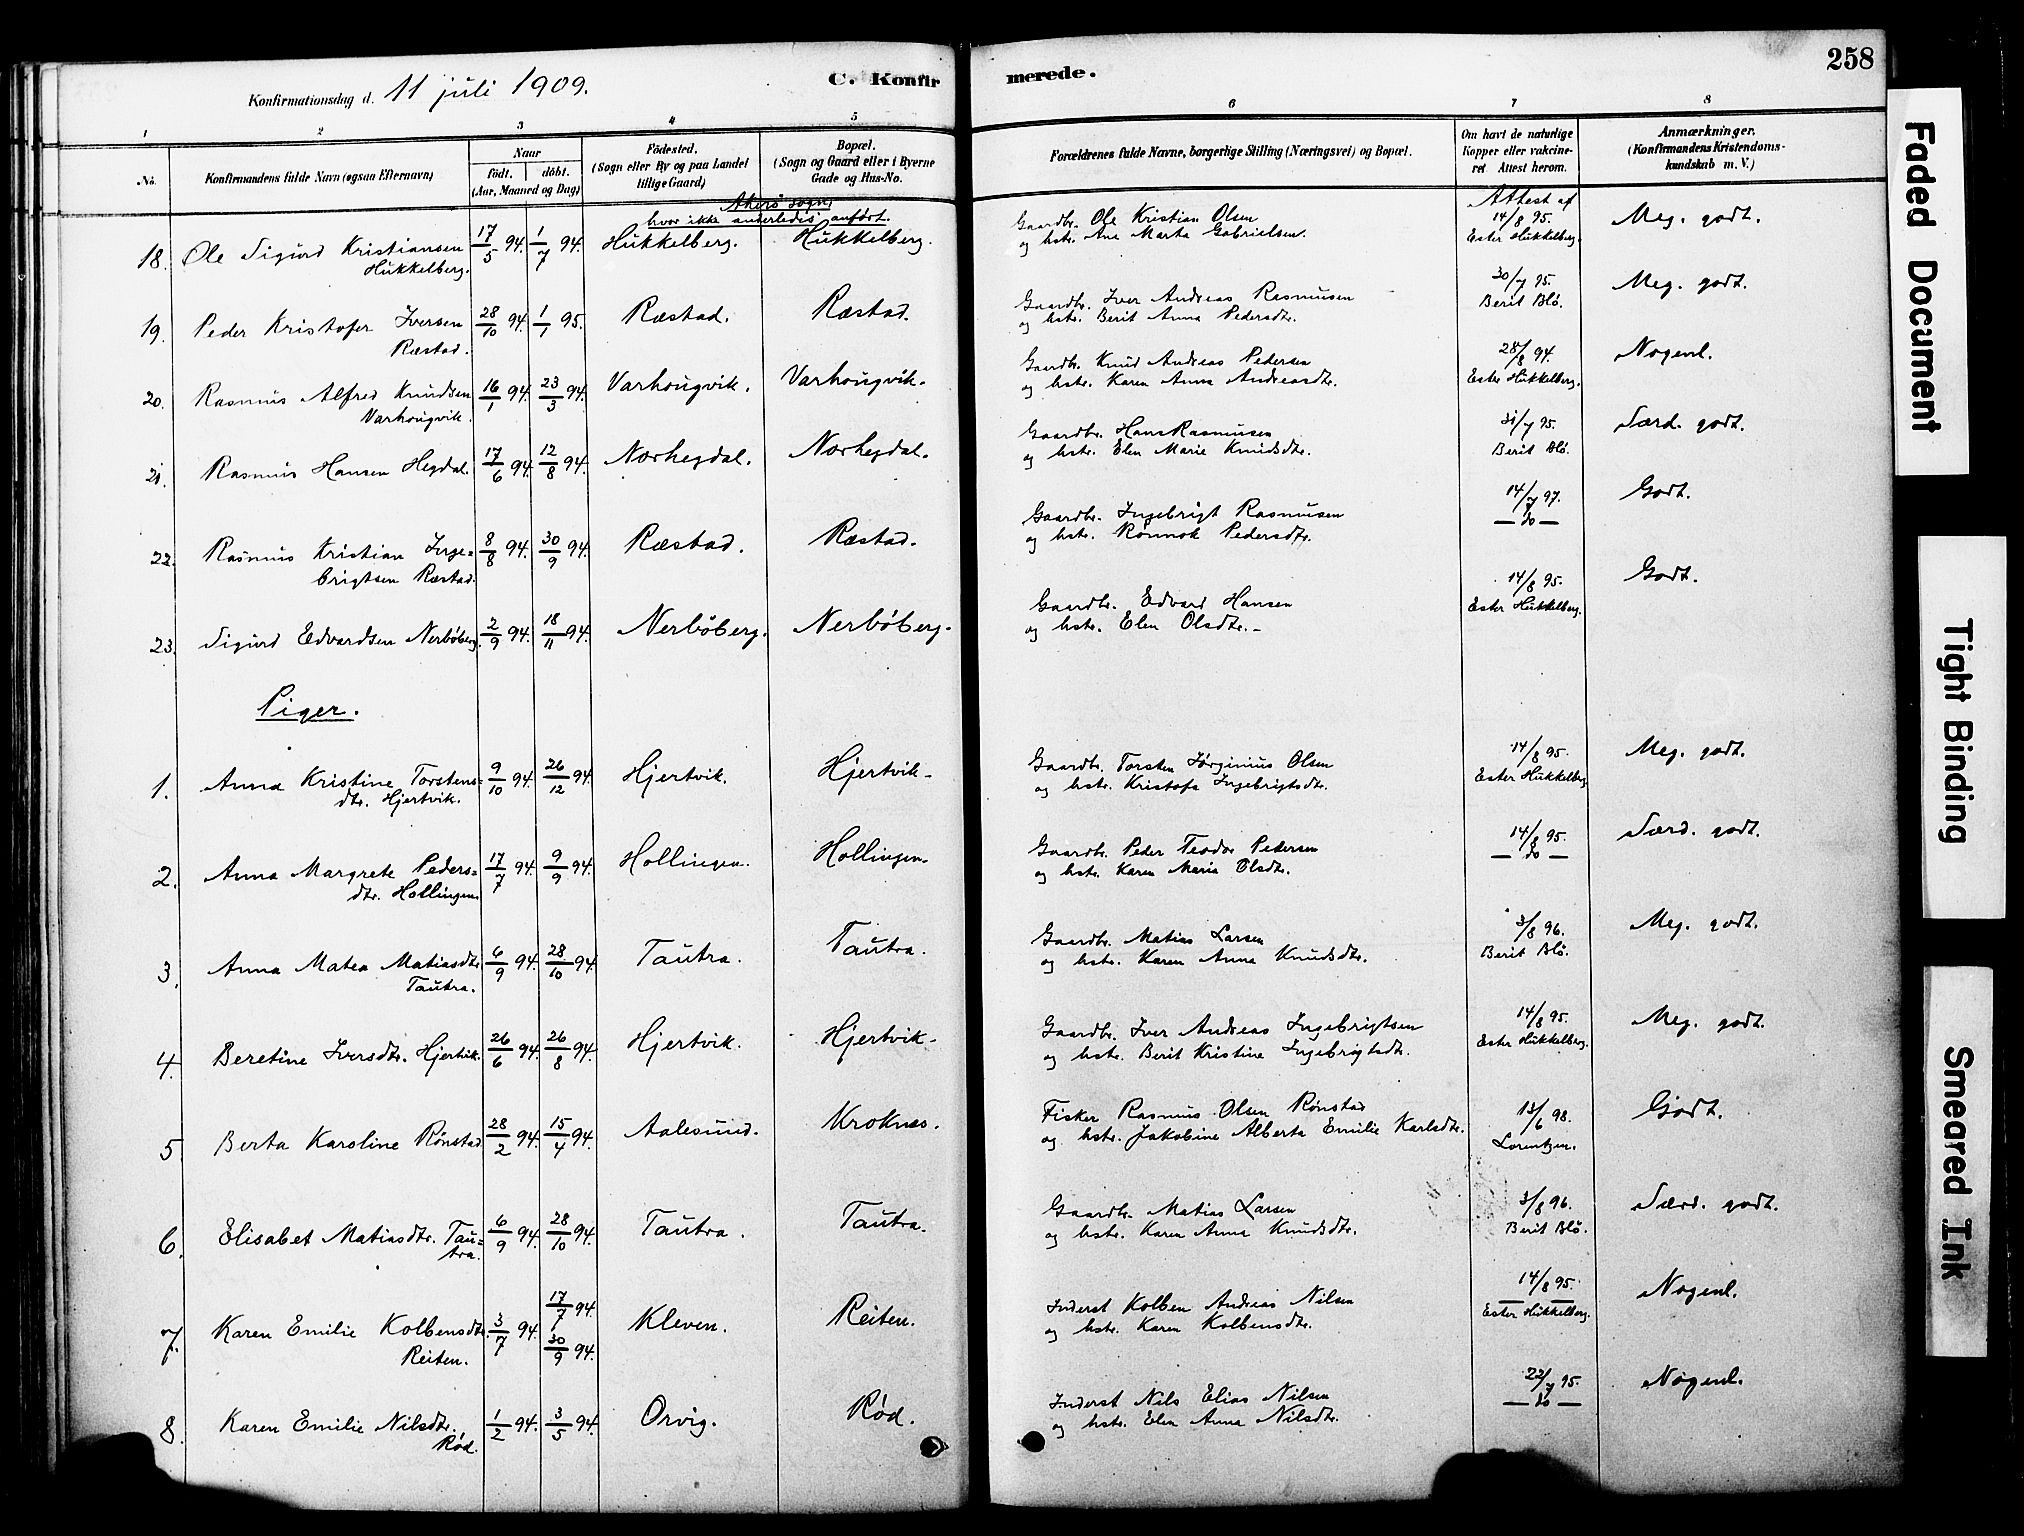 Konfirmationsdag d. 11 juli 1909.
C. Konfirmerede.
258
1 2 3 4 5 6 7 8
No.
Konfirmandens fulde Navn (ogsaa Efternavn)
Naar
födt. döbt.
(Aar, Maaned og Dag)
Födested.
(Sogn eller By og paa Landet
tillige Gaard)
Bopæl.
(Sogn og Gaard eller i Byerne
Gade og Hus-No.
Forældrenes fulde Navne, borgerlige Stilling (Næringsvei) og Bopæl.
Om havt de naturlige
Kopper eller vakcine-
ret Attest herom.
Anmærkninger.
(Konfirmandens Kristendoms-
kundskab m. V.)
Akerö sogn,
hvor ikke anderledes anfört.
Attest af
18. Ole Sigurd Kristiansen 17/5 94. 1/7 94. Hukkelberg. Hukkelberg. Gaardbr. Ole Kristian Olsen 14/8 95. Meg. godt.
Hukkelberg. og hstr. Ane Marta Gabrielsen. Ester Hukkelberg.
19. Peder Kristofer Iversen 28/10 94. 1/1 95. Ræstad. Ræstad. Gaardbr. Iver Andreas Rasmusen 30/7 95. Meg. godt.
Ræstad. og hstr. Berit Anna Pedersdtr. Berit Blö.
20. Rasmus Alfred Knudsen 16/1 94. 23/3 94. Varhougvik. Varhougvik. Gaardbr. Knud Andreas Pedersen 28/8 94. Nogenl.
Varhougvik. og hstr. Karen Anna Andreasdtr. Ester Hukkelberg.
21. Rasmus Hansen Hegdal. 17/6 94. 12/8 94. Norhegdal. Norhegdal. Gaardbr. Hans Rasmusen 31/7 95. Særd. godt.
og hstr. Elen Marie Knudsdtr. Berit Blö.
22. Rasmus Kristian Inge= 8/8 94. 30/9 94. Ræstad. Ræstad. Gaardbr. Ingebrigt Rasmusen 14/7 97. Godt.
brigtsen Ræstad. og hstr. Rönnok Pedersdtr. — do —
23. Sigurd Edvardsen Nerböberg. 2/9 94. 18/11 94. Nerböberg. Nerböberg. Gaardbr. Edvard Hansen 14/8 95. Godt.
og hstr. Elen Olsdtr. Ester Hukkelberg.
Piger.
1. Anna Kristine Torstens= 9/10 94. 26/12 94. Hjertvik. Hjertvik. Gaardbr. Torsten Jørginius Olsen 14/8 95. Meg. godt.
dtr. Hjertvik. og hstr. Kristofa Ingebrigtsdtr. Ester Hukkelberg
2. Anna Margrete Peders= 17/7 94. 9/9 94. Hollingen. Hollingen. Gaardbr. Peder Teodor Pedersen 14/8 95. Særd. godt.
dtr. Hollingen. og hstr. Karen Maria Olsdtr. — do —
3. Anna Matea Matiasdtr. 6/9 94. 28/10 94. Tautra. Tautra. Gaardbr. Matias Larsen 3/8 96. Meg. godt.
Tautra. og hstr. Karen Anna Knudsdtr. Berit Blö.
4. Beretine Iversdtr. Hjertvik. 26/6 94. 26/8 94. Hjertvik. Hjertvik. Gaardbr. Iver Andreas Ingebrigtsen 14/8 95. Meg. godt.
og hstr. Berit Kristine Ingebrigtsdtr. Ester Hukkelberg.
5 Berta Karoline Rønstad 28/2 94. 15/4 94. Aalesund. Kroknes. Fisker Rasmus Olsen Rønstad 13/6 98. Godt.
og hstr. Jakobine Alberta Emilie Karlsdtr. Lorentzen.
6. Elisabet Matiasdtr. Tau= 6/9 94. 28/10 94. Tautra. Tautra. Gaardbr. Matias Larsen 3/8 96. Særd. godt.
tra. og hstr. Karen Anna Knudsdtr. Berit Blö.
7. Karen Emilie Kolbensdtr. 3/7 94. 17/7 94. 30/9 94. Kleven. Reiten. Inderst Kolben Andreas Nilsen 14/8 95. Nogenl.
Reiten. og hstr. Karen Kolbensdtr. Ester Hukkelberg.
8. Karen Emilie Nilsdtr. 1/2 94. 3/5 94. Orvig. Rød. Inderst Nils Elias Nilsen 22/7 95. Nogenl.
Rød. og hstr. Elen Anna Nilsdtr. — do —
Faded Document
Tight Binding
Smeared Ink